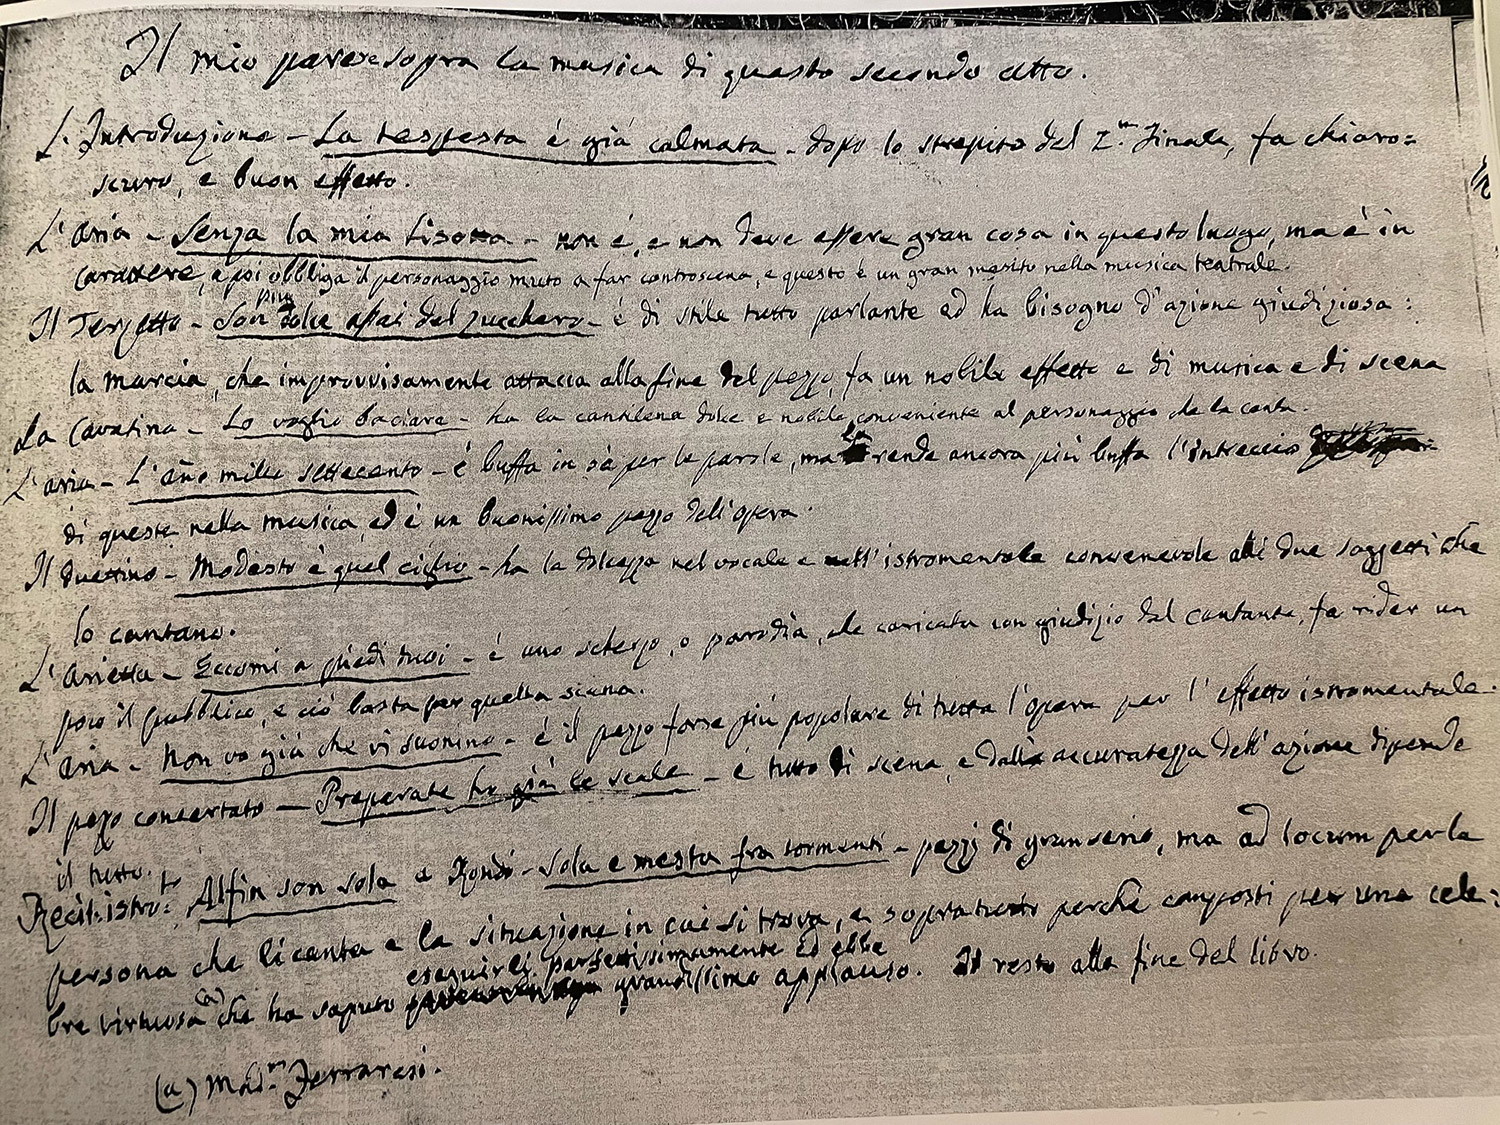 Il mio parere sopra la musica di questo secondo atto.
L'Introduzione - La tempesta è già calmata - dopo lo strepito del I.m Finale, fa chiaro=
scuro, e buon effetto.
L'aria - Senza la mia Lisotta - non è, e non deve essere gran cosa in questo luogo, ma è in
carattere, e poi obbliga il personaggio muto a far controscena, e questo è un gran merito nella musica teatrale.
Il Terzetto - Son più dolce assai del zucchero - è di stile tutto parlante ed ha bisogno d'azione giudiziosa:
la marcia, che improvvisamente attacca alla fine del pezzo, fa un nobile effetto e di musica e di scena
La Cavatina - Lo voglio baciare - ha la cantilena dolce e nobile conveniente al personaggio che la canta.
L'aria - L'año mille settecento - è buffa in sè per le parole, ma la rende ancora più buffa l'intreccio
di queste nella musica, ed è un buonissimo pezzo dell'opera.
Il duettino - Modesto è quel ciglio - ha la dolcezza nel vocale e nell'istromentale convenevole alli due soggetti che
lo cantano.
L'Arietta - Eccomi a piedi tuoi - è uno scherzo, o parodia, che caricata con giudizio dal cantante, fa rider un
poco il pubblico, e ciò basta per quella scena.
L'Aria - Non vo già che vi suonino - è il pezzo forse più popolare di tutta l'opera per l'effetto istromentale.
Il pezzo concertato - Preparate ho già le scale - è tutto di scena, e dalla accuratezza dell'azione dipende
il tutto.
Recit. istro:to Alfin son sola e Rondò - Sola e mesta fra tormenti - pezzi di gran serio, ma ad locum per la
persona che li canta e la situazione in cui si trova, e sopratutto perchè composti per una cele=
bre virtuosa (a) che ha saputo eseguirli perfettissimamente ed ebbe grandissimo applauso. Il resto alla fine del libro.
(a) Mad.m Ferraresi.